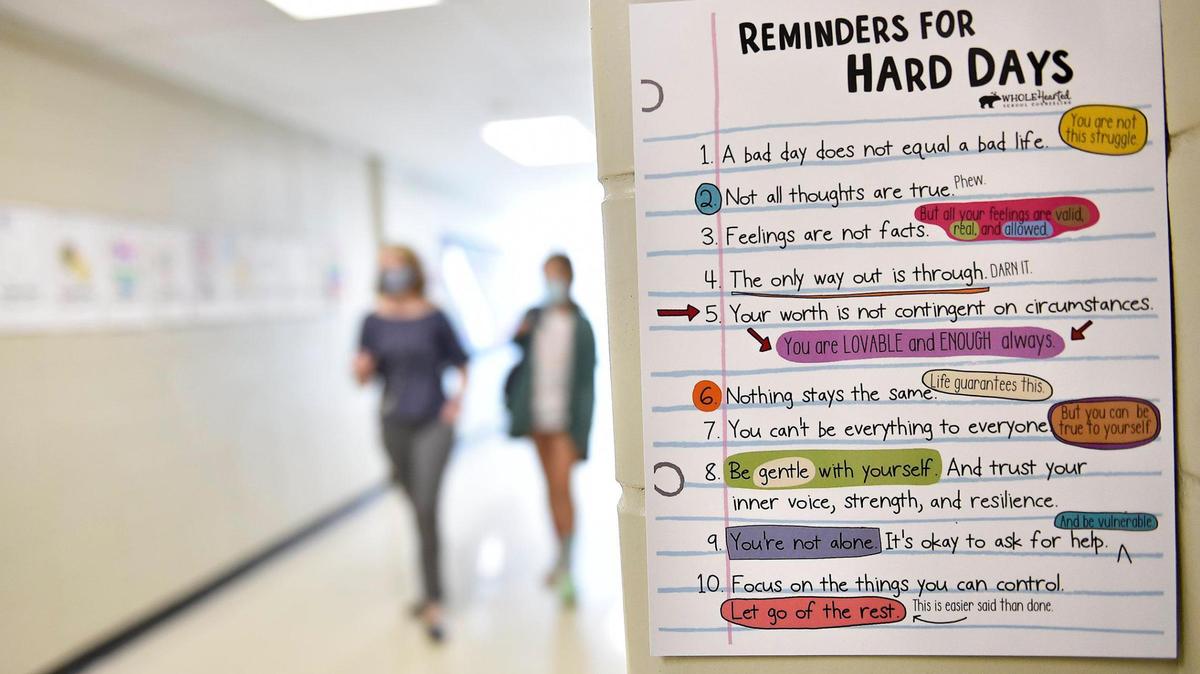 REMINDERS FOR
HARD DAYS
WHOLEHearted
SCHOOL COUNSELING
You are not
this struggle.
1. A bad day does not equal a bad life.
2. Not all thoughts are true. Phew.
But all your feelings are valid,
real, and allowed.
3. Feelings are not facts.
4. The only way out is through. DARN IT.
5. Your worth is not contingent on circumstances.
You are LOVABLE and ENOUGH always.
6. Nothing stays the same. Life guarantees this.
7. You can't be everything to everyone.
But you can be
true to yourself
8. Be gentle with yourself. And trust your
inner voice, strength, and resilience.
And be vulnerable
9. You're not alone. It's okay to ask for help.
10. Focus on the things you can control.
Let go of the rest. This is easier said than done.